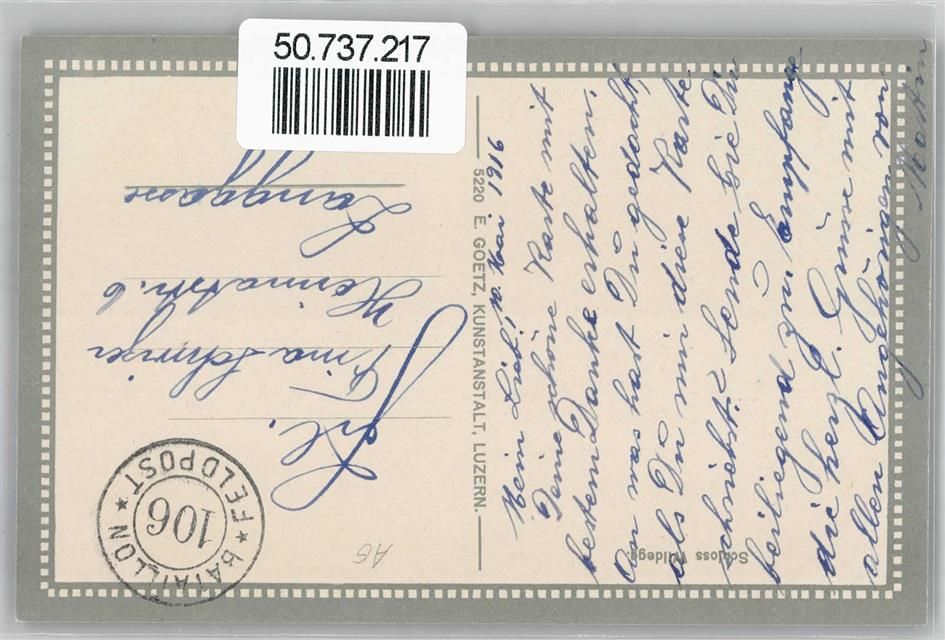 50.737.217
Mein Lieb! 10. Mai 1916
Deine schöne Karte mit
bestem Danke erhalten.
An was hast Du gedacht,
als Du mir diese Karte
schriebst? Sende hie Dir
beiliegend zu Empfange
die herzl. Grüsse mit
allen Angehörigen von
Martin
Schloss Wildegg.
5220 E. GOETZ, KUNSTANSTALT, LUZERN.
Frl.
Heimatstr. 6
Langgasse
BATAILLON
FELDPOST
106
AG